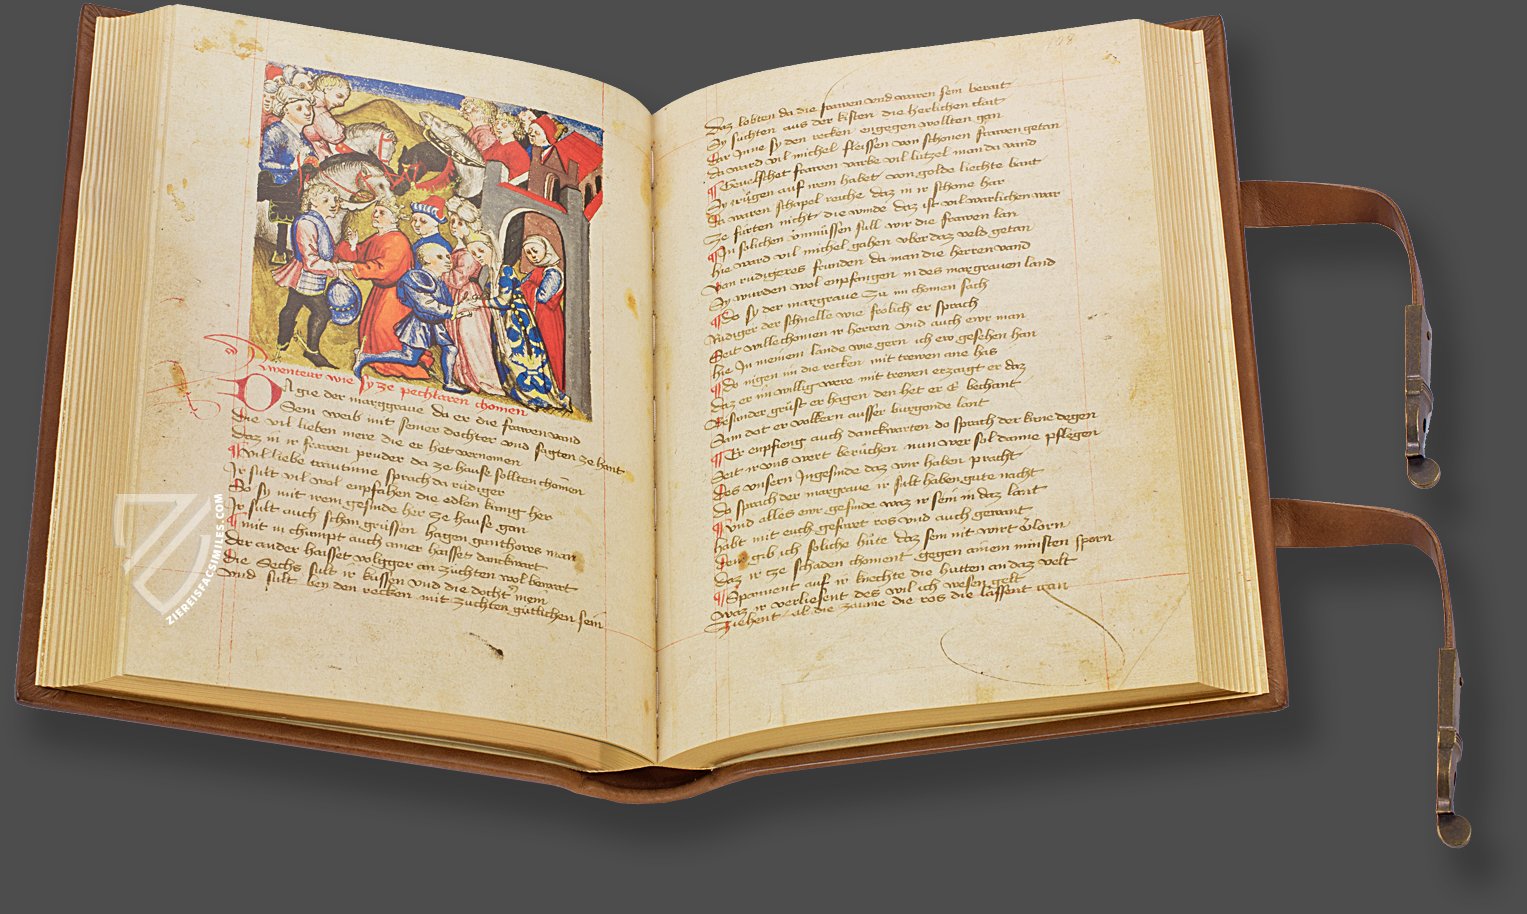 Awenteur wie sy ze pechlaren chomen
Do gie der marggraue da er die frawen vand
Sein weib mit seiner dochter vnd sagten ze hant
Die vil lieben mere die er het vernomen
Daz in ir frawen pruder da ze hause sollten chomen
Vil liebe trautinne sprach da rudiger
Ir sult vil wol enpfahen die edlen kunig her
So sy mit irem gesinde her ze hause gan
Ir sult auch schon grussen hagen gunthores man
mit in chumpt auch ainer haisset danckwart
der ander haisset volkger an zuchten wol bewart
die Sechs sult ir kussen vnd die dochter mein
vnd sult ben den recken mit zuchten gutlichen sein
ZIEREISFACSIMILES.COM
178
daz lobten da die frawen vnd waren sein berait
Sy suchten aus der kisten die herlichen clait
Dar Inne sy den recken engegen wollten gan
da ward vil michel fleissen von schonen frawen getan
Geuelschet frawen varbe vil lutzel man da vand
Sy trugen auf irem habet von golde liechte bant
Da waren schapel reiche daz in ir schone har
Ze furten nicht die winde daz ist vil warlichen war
In solichen vnmussen sull wir die frawen lan
hie ward vil michel gahen vber daz veld getan
Von rudigeres frunden da man die herren vand
Sy wurden wol enpfangen in des margrauen land
Do sy der margraue zu im chomen sach
Rudiger der schnelle wie frolich er sprach
Seit willechomen ir herren vnd auch ewr man
hie In meinem lande wie gern ich ew gesehen han
Do nigen im die recken mit trewen ane has
daz er im willig were mit trewen erzaigt er daz
Besunder grust er hagen den het er E bechant
Sam dat er volkern ausser burgonde lant
Er enpfieng auch danckwarten do sprach der kune degen
Seit ir vns wert beruchen nun wer sol danne pflegen
Des vnsern Ingesinde daz wir haben pracht
do sprach der margraue ir sult haben gute nacht
Vnd alles ewr gesinde waz ir sein in daz lant
habt mit euch gefuert ros vnd auch gewant
Dem gib ich soliche hute daz sein nit wirt verlorn
daz ir ze schaden choment gegen ainem minsten sporn
Spannent auf ir knechte die hutten an daz velt
Waz ir verliesent des wil ich wesen gelt
Ziehent al die zaume die ros die lassent gan